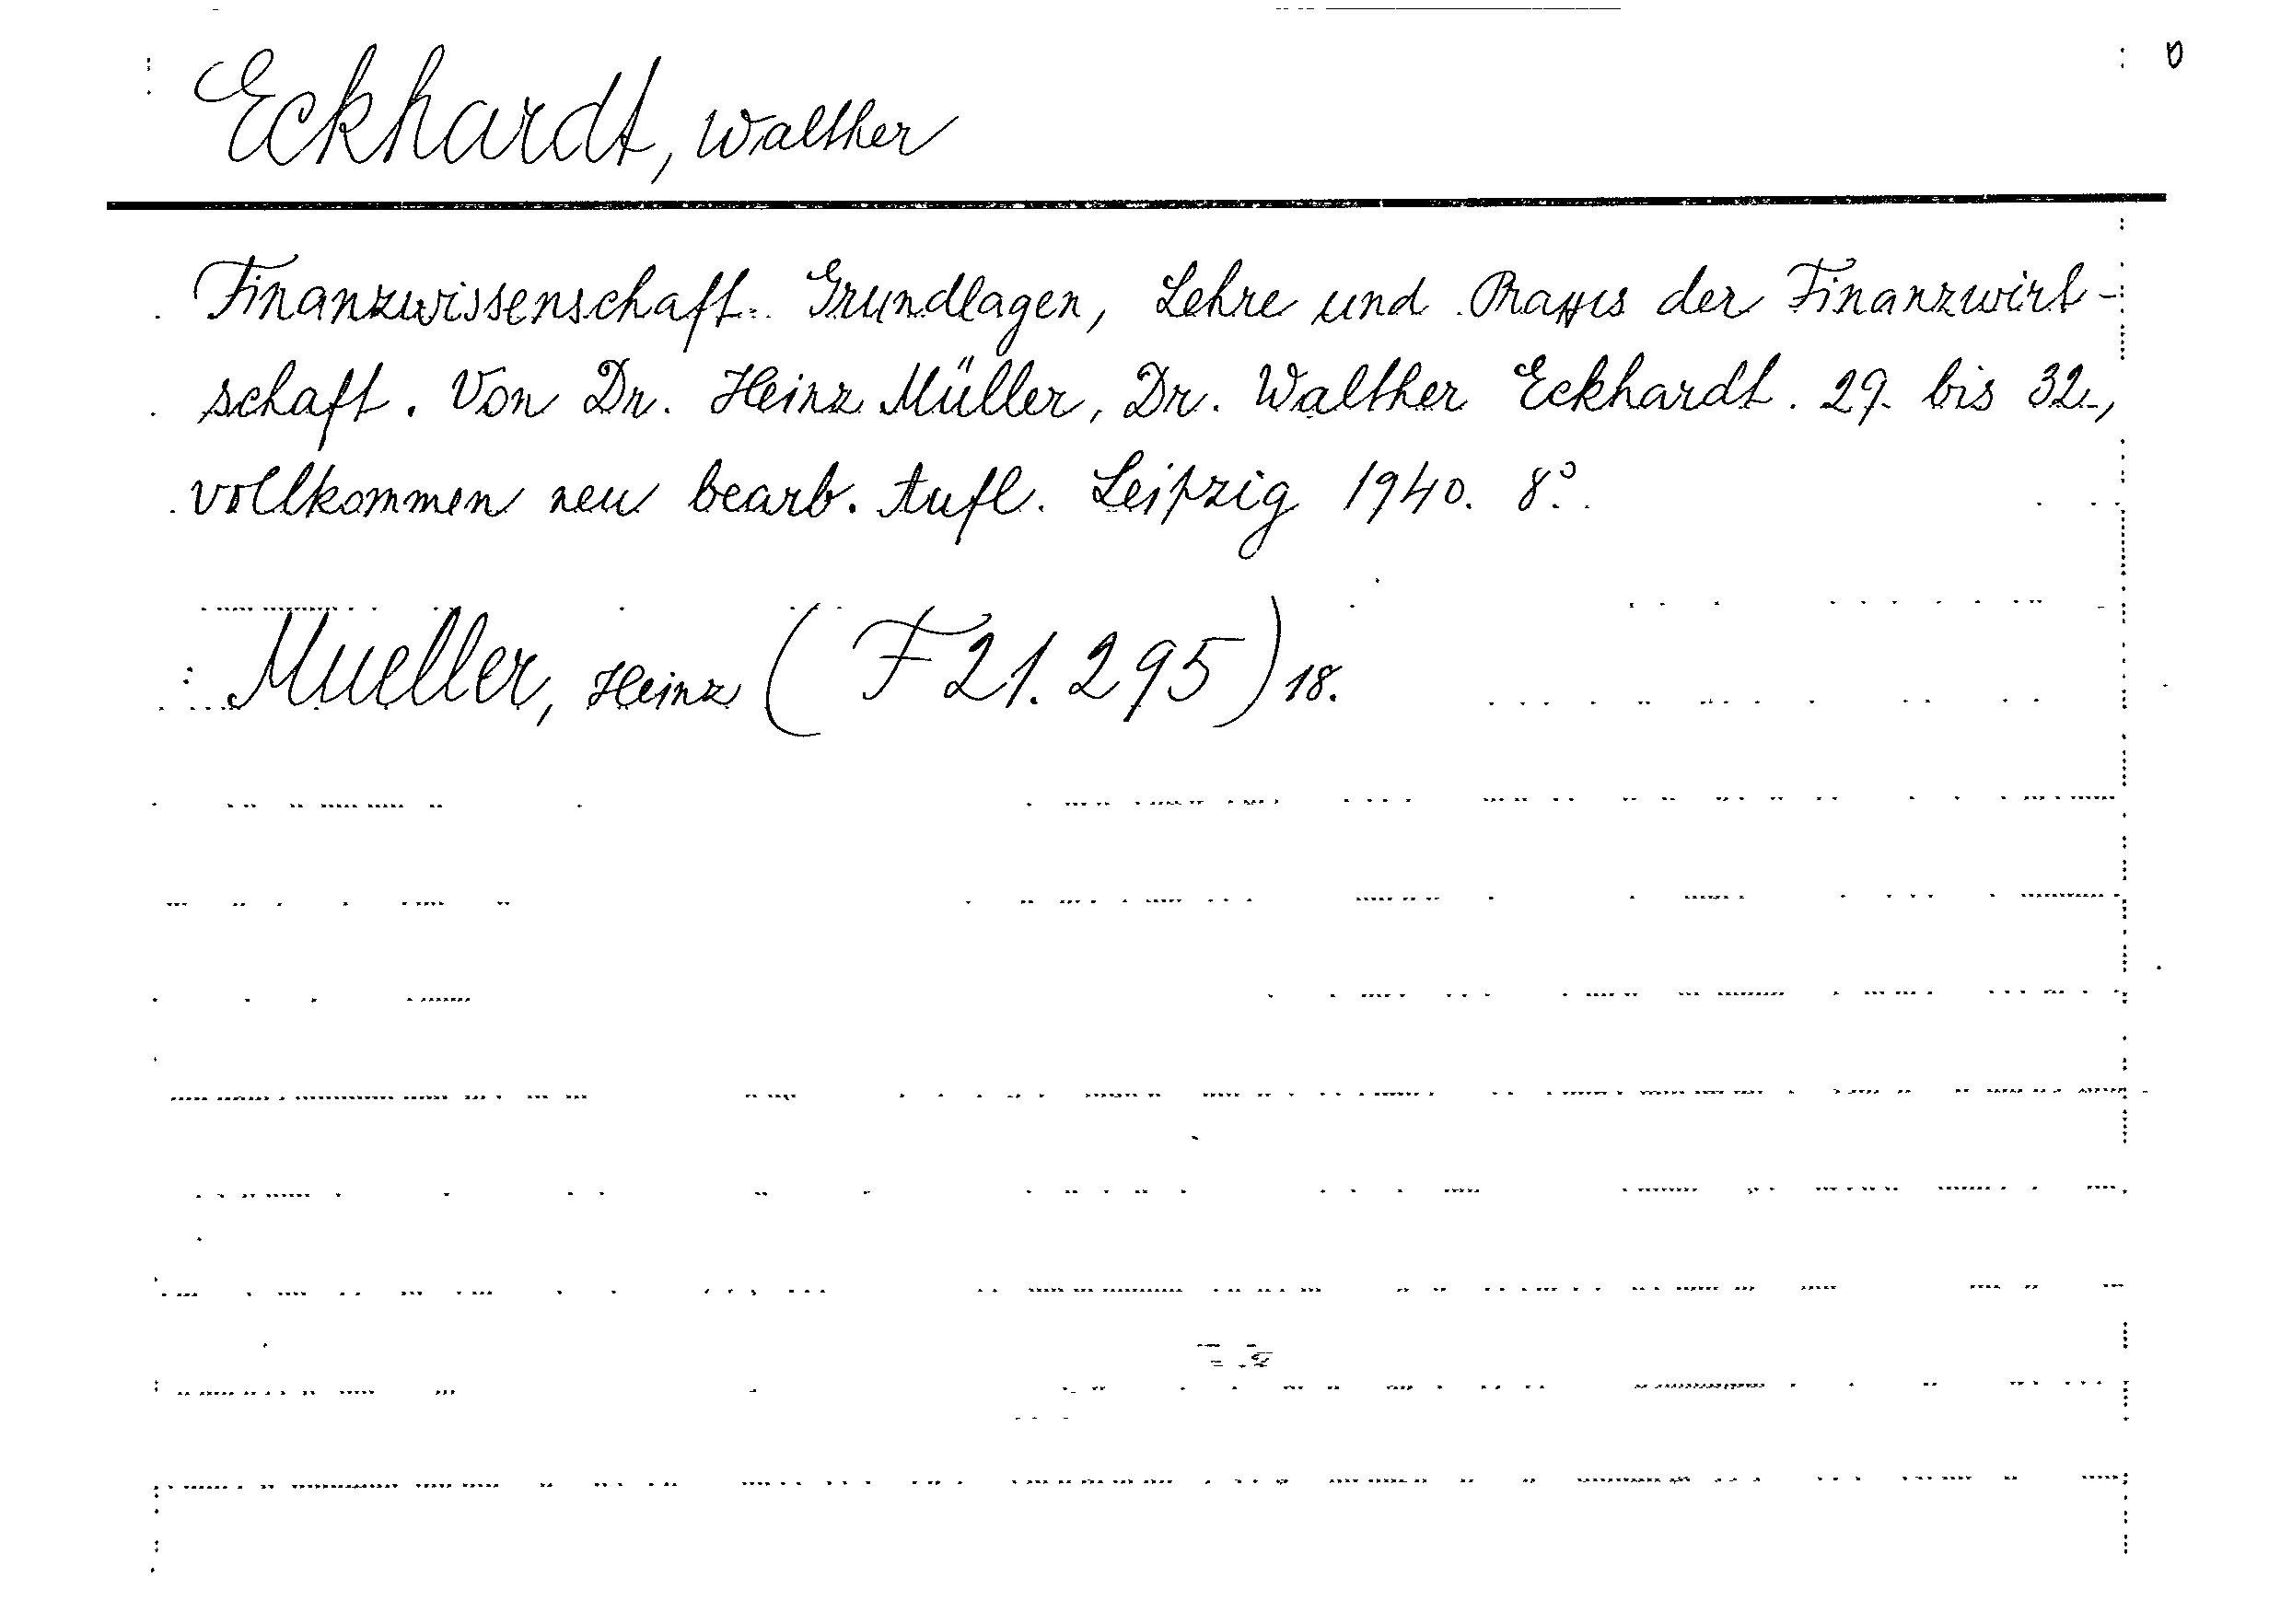 Eckhardt, Walther
Finanzwissenschaft. Grundlagen, Lehre und Praxis der Finanzwirt-
schaft. Von Dr. Heinz Müller, Dr. Walther Eckhardt. 29. bis 32.,
vollkommen neu bearb. Aufl. Leipzig 1940. 8°.
Mueller, Heinz (F 21.295) 18.